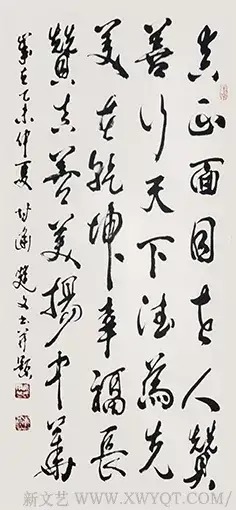 真正面目世人贊
善行天下德為先
美在乾坤幸福長
贊真善美揚中華
歲在乙未仲夏
新文艺 WWW.XWYQT.COM/